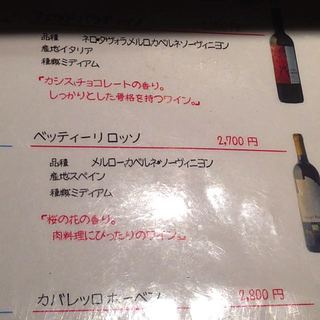 品種 ネロ・ダヴォラ,メルロ,カベルネソーヴィニヨン
産地イタリア
種類ミディアム
「カシス,チョコレートの香り。
しっかりとした骨格を持つワイン。」
ベッティーリ ロッソ 2,700円
品種 メルロー,カベルネ・ソーヴィニヨン
産地スペイン
種類ミディアム
「桜の花の香り。
肉料理にぴったりのワイン。」
カバレッロ ホーベン 2,800円